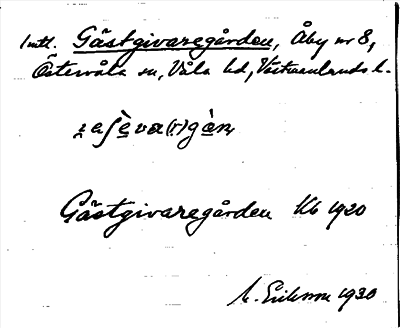 Intl. Gästgivaregården, Åby nr 8,
Östervåla sn, Våla hd, Västmanlands l.
Gästgivaregården Kb 1920
M. Eriksson 1930